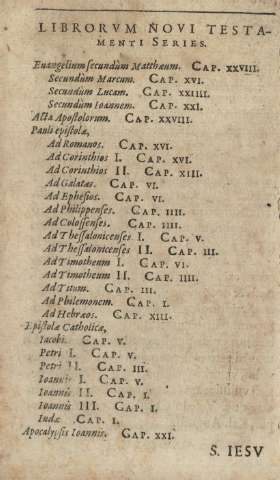 LIBRORVM NOVI TESTA-
MENTI SERIES.
Euangelium secundùm Matthæum. CAP. XXVIII.
Secundùm Marcum. CAP. XVI.
Secundùm Lucam. CAP. XXIIII.
Secundùm Ioannem. CAP. XXI.
Acta Apostolorum. CAP. XXVIII.
Pauli epistolæ,
Ad Romanos. CAP. XVI.
Ad Corinthios I. CAP. XVI.
Ad Corinthios II. CAP. XIII.
Ad Galatas. CAP. VI.
Ad Ephesios. CAP. VI.
Ad Philippenses. CAP. IIII.
Ad Colossenses. CAP. IIII.
Ad Thessalonicenses I. CAP. V.
Ad Thessalonicenses II. CAP. III.
Ad Timotheum I. CAP. VI.
Ad Timotheum II. CAP. IIII.
Ad Titum. CAP. III.
Ad Philemonem. CAP. I.
Ad Hebræos. CAP. XIII.
Epistolæ Catholicæ,
Iacobi. CAP. V.
Petri I. CAP. V.
Petri II. CAP. III.
Ioannis I. CAP. V.
Ioannis II. CAP. I.
Ioannis III. CAP. I.
Iudæ CAP. I.
Apocalypsis Ioannis. CAP. XXI.
S. IESV